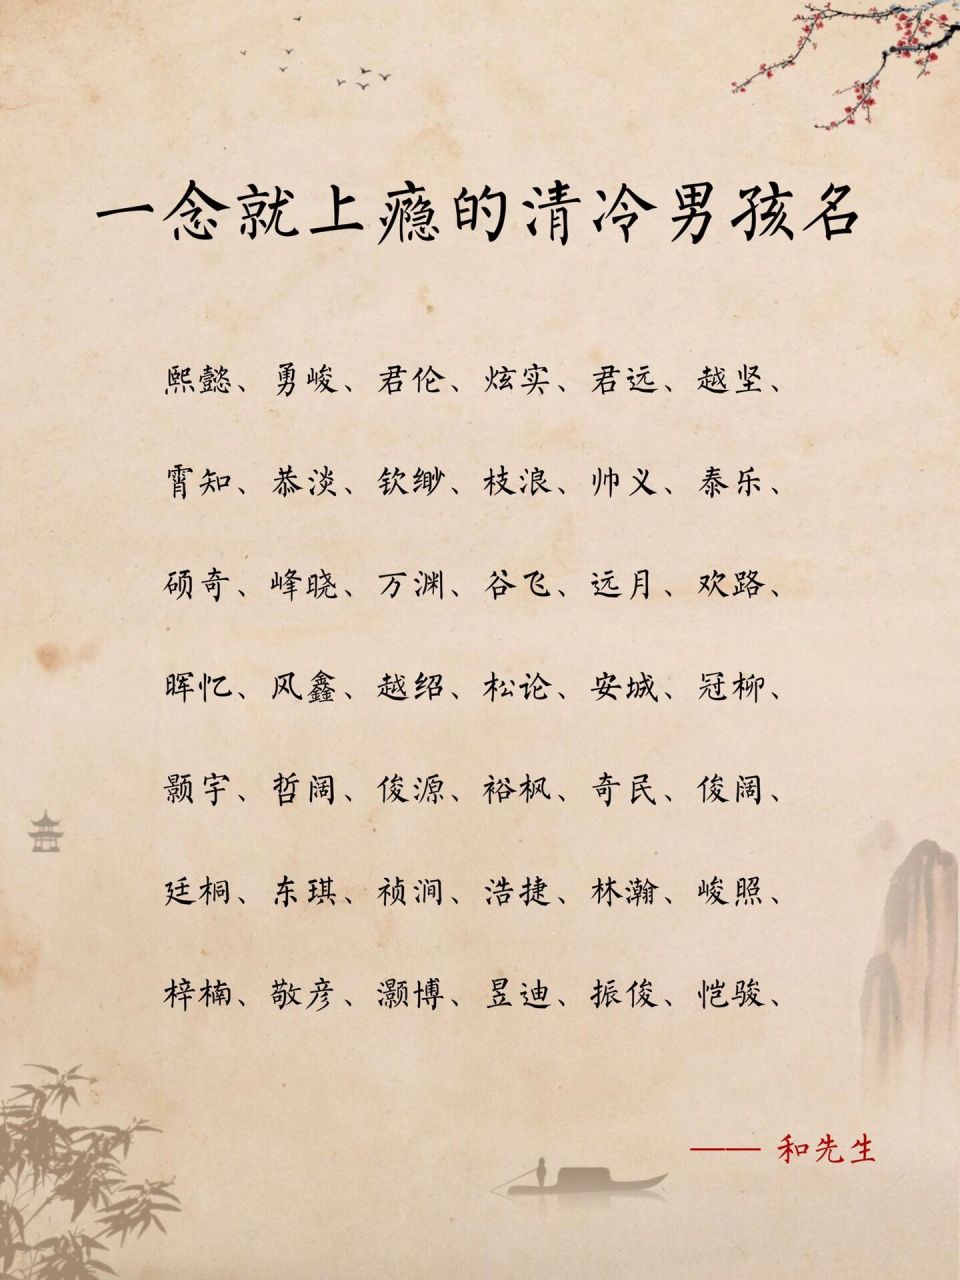 一念就上瘾的清冷男孩名
熙懿、勇峻、君伦、炫实、君远、越坚、
霄知、恭淡、钦缈、枝浪、帅义、泰乐、
硕奇、峰晓、万渊、谷飞、远月、欢路、
晖忆、风鑫、越绍、松论、安城、冠柳、
颢宇、哲阔、俊源、裕枫、奇民、俊阔、
廷桐、东琪、祯涧、浩捷、林瀚、峻照、
梓楠、敬彦、灏博、昱迪、振俊、恺骏、
—— 和先生